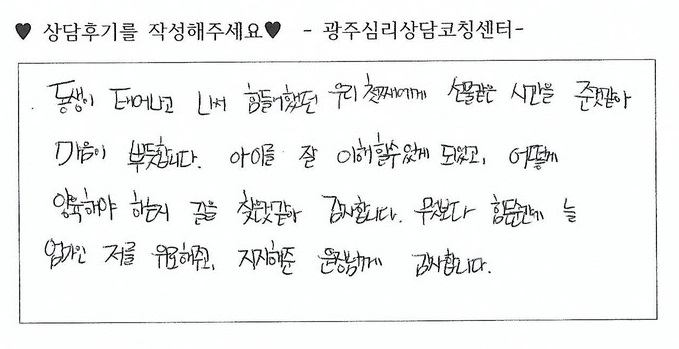 ♥ 상담후기를 작성해주세요♥ - 광주심리상담코칭센터-
동생이 태어나고 나서 힘들어했던 우리 첫째에게 선물같은 시간을 준것같아
마음이 뿌듯합니다. 아이를 잘 이해할수있게 되었고, 어떻게
양육해야 하는지 길을 찾았같아 감사합니다. 무엇보다 힘든순간에 늘
엄마인 저를 위로해주고, 지지해준 원장님께 감사합니다.